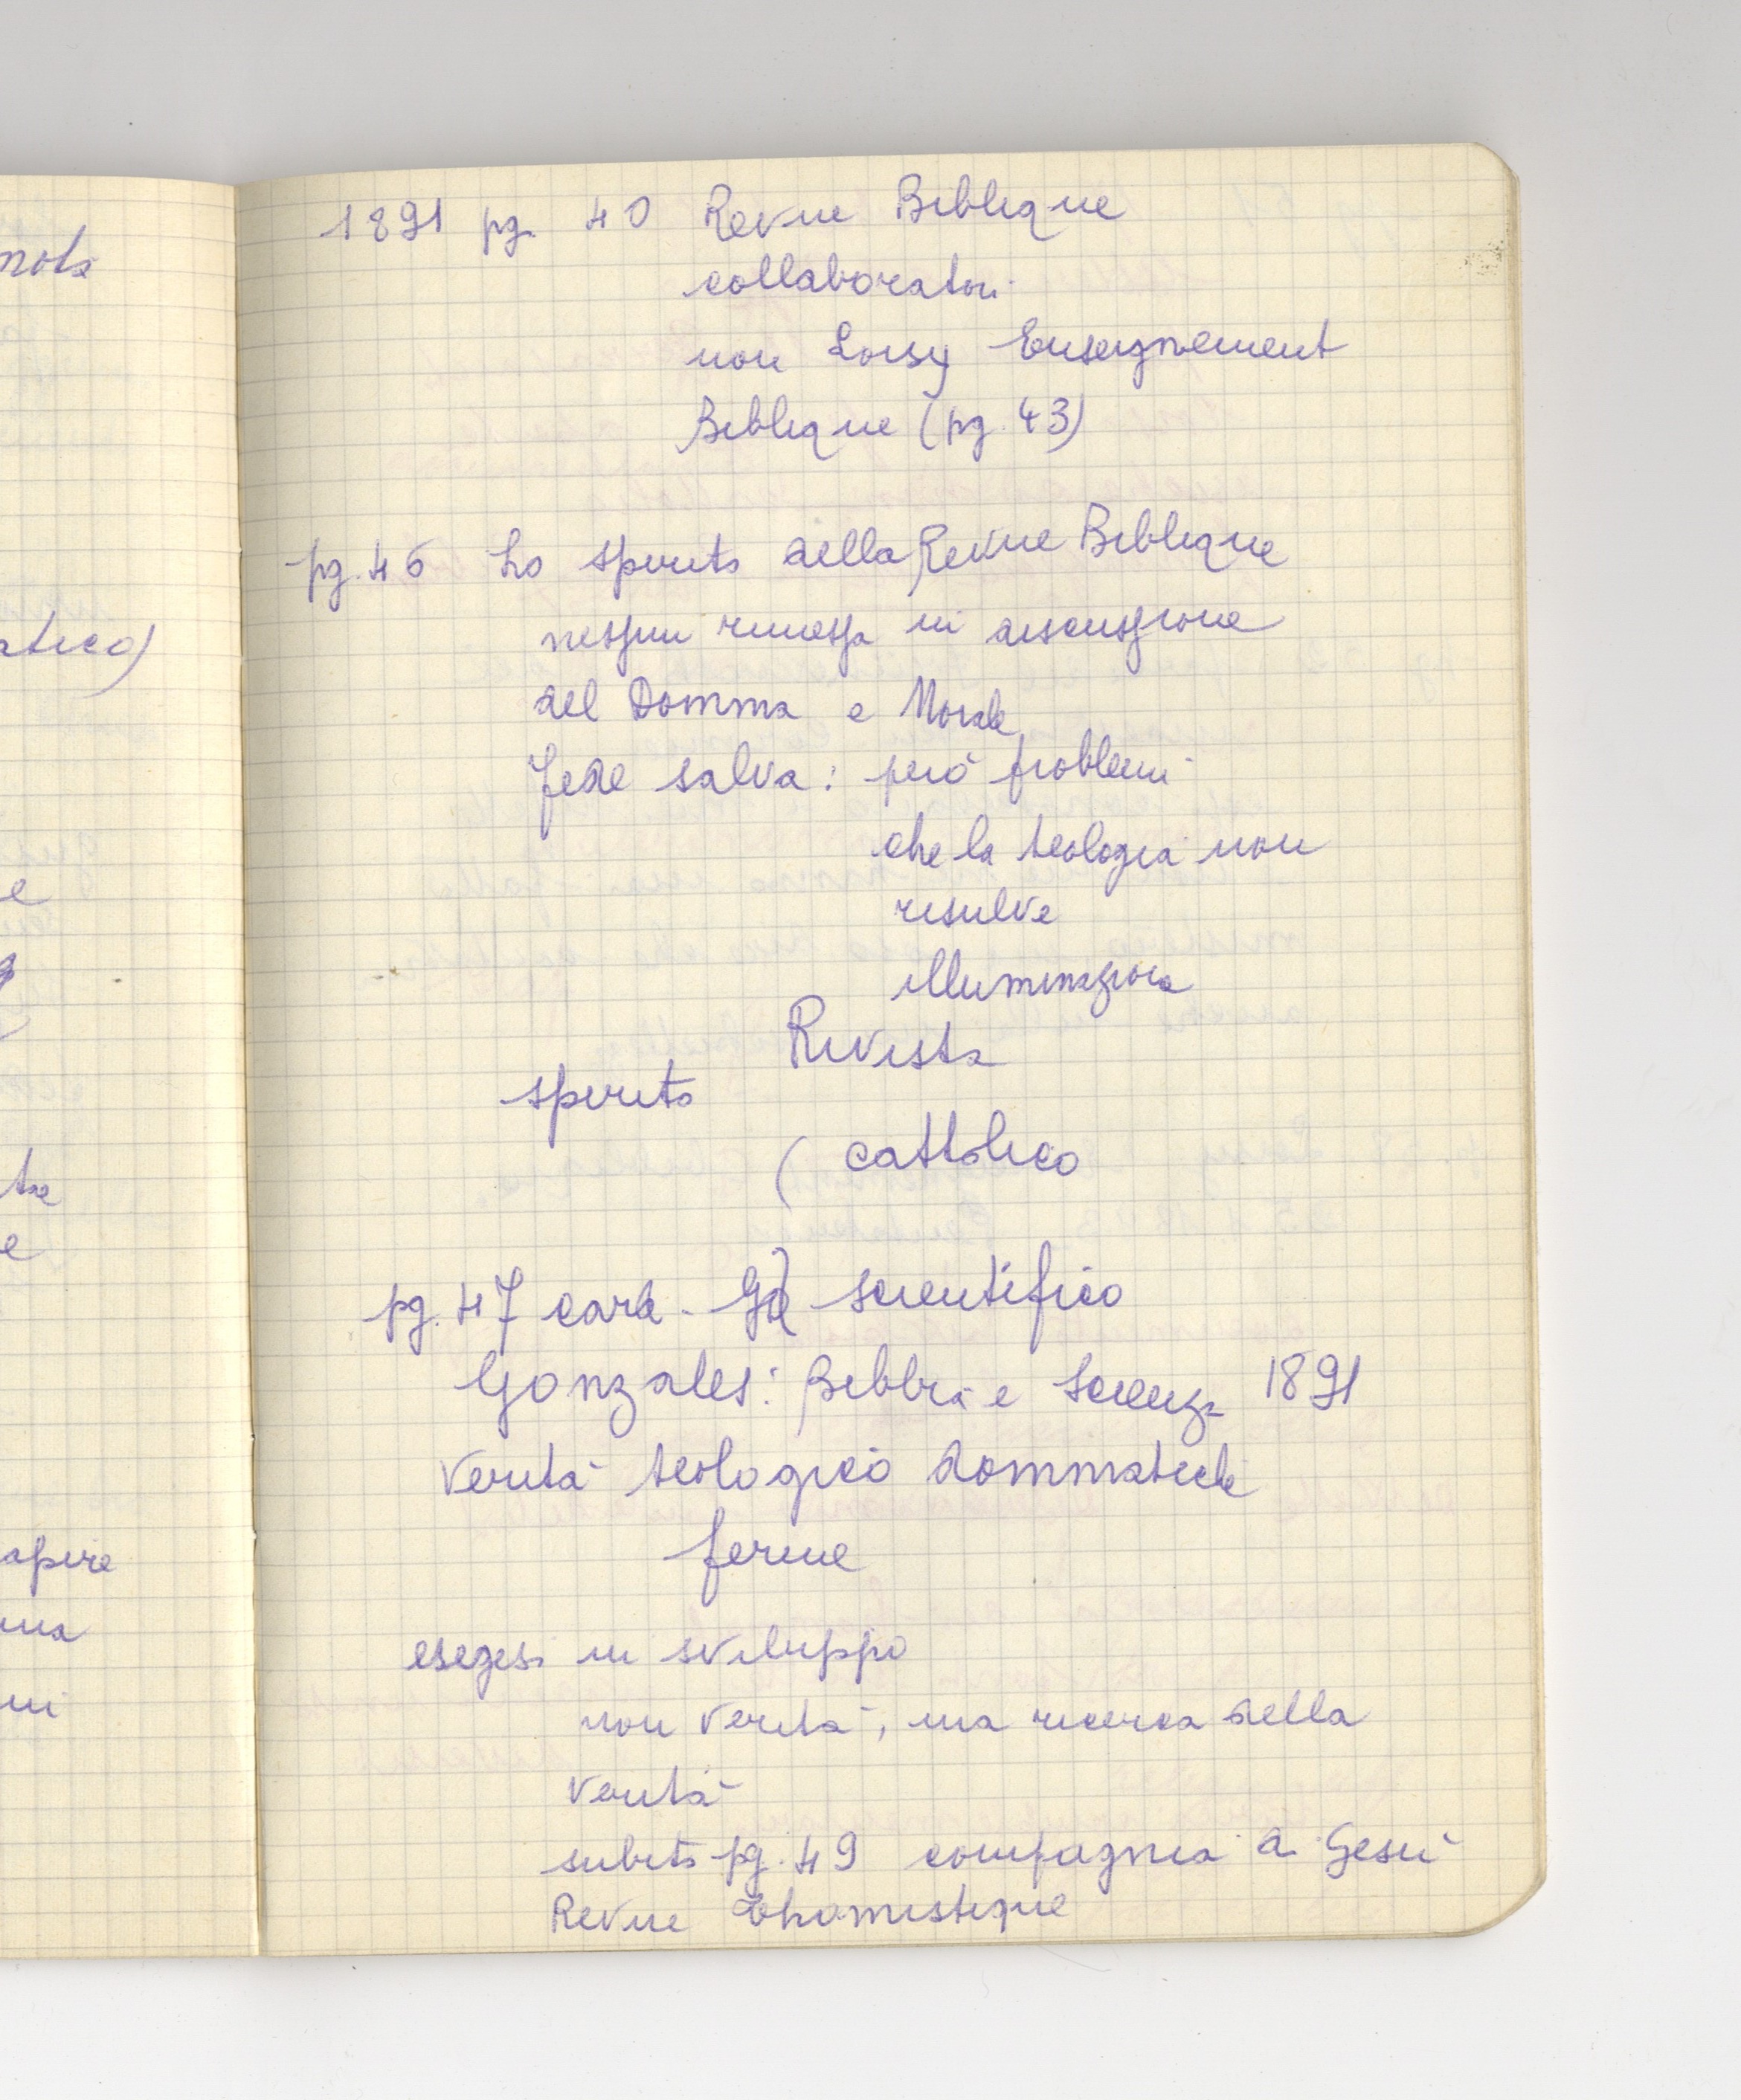 nota
atico)
e
te
e
apire
ma
ni
1891 pg. 40 Revue Biblique
collaboratori
non Loisy Enseignement
Biblique (pg. 43)
pg. 46 Lo spirito della Revue Biblique
nessun rimessa in discussione
del Domma e Morale
fede salva: però problemi
che la teologia non
risulve
illuminazione
Rivista
spirito
( cattolico
pg. 47 card. scientifico
Gonzales: Bibbia e Scienza 1891
Verità teologico dommatiche
ferme
esegesi in sviluppo
non verità, ma ricerca della
verità
subito pg. 49 compagnia d. Gesù
Revue Thomistique